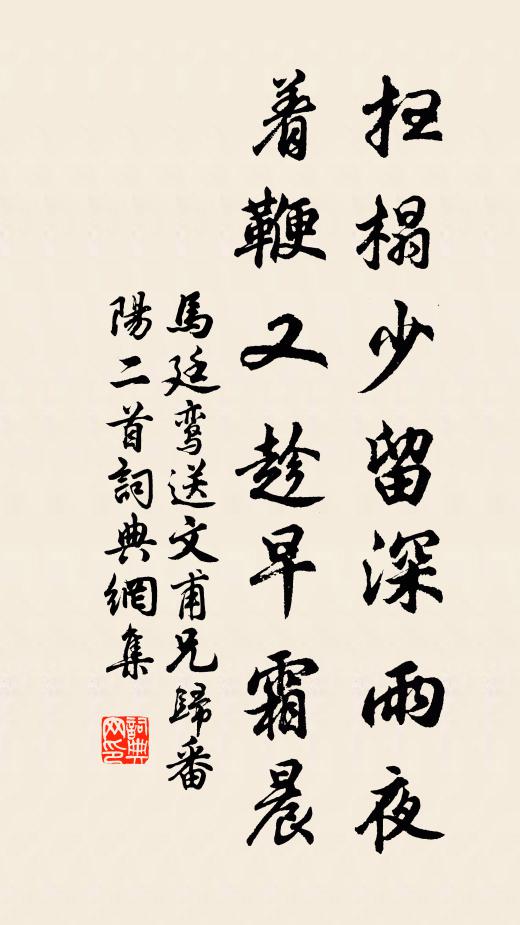 扫榻少留深雨夜
着鞭又趁早霜晨
馬廷鸾送文甫兄歸番
陽二首詞典網集
詞典
网印